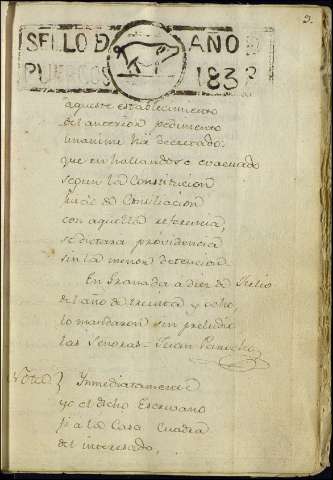 3.
SELLO D AÑO D
PUERCOS 1833
aqueste establecimiento
del anterior pedimento
unanime há decretado:
que en hallandose evacuado
segun la Constitucion
juicio de Conciliacion
con aquella referencia,
se dictara providencia
sin la menor detencion
En Granada a diez de Julio
del año de treinta y ocho,
lo mandaron sin preludio
las Señoras = Juan
Nota } Inmediatamente
yo el dicho Escrivano
fi a la Casa Cuadra
del interesado,